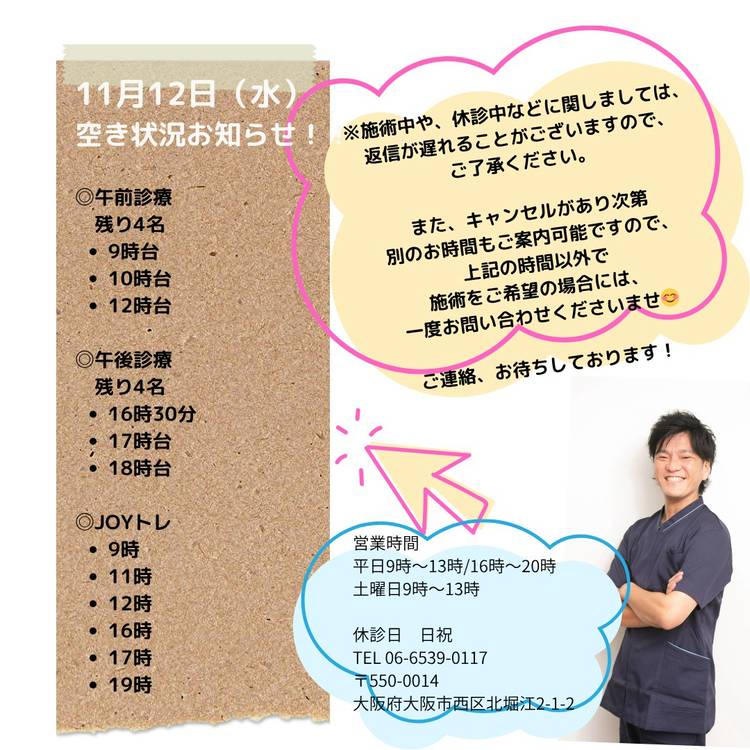 11月12日（水）
空き状況お知らせ！
◎午前診療
残り4名
• 9時台
• 10時台
• 12時台
◎午後診療
残り4名
• 16時30分
• 17時台
• 18時台
◎JOYトレ
• 9時
• 11時
• 12時
• 16時
• 17時
• 19時
※施術中や、休診中などに関しましては、
返信が遅れることがございますので、
ご了承ください。
また、キャンセルがあり次第
別のお時間もご案内可能ですので、
上記の時間以外で
施術をご希望の場合には、
一度お問い合わせくださいませ😊
ご連絡、お待ちしております！
営業時間
平日9時〜13時/16時〜20時
土曜日9時〜13時
休診日　日祝
TEL 06-6539-0117
〒550-0014
大阪府大阪市西区北堀江2-1-2